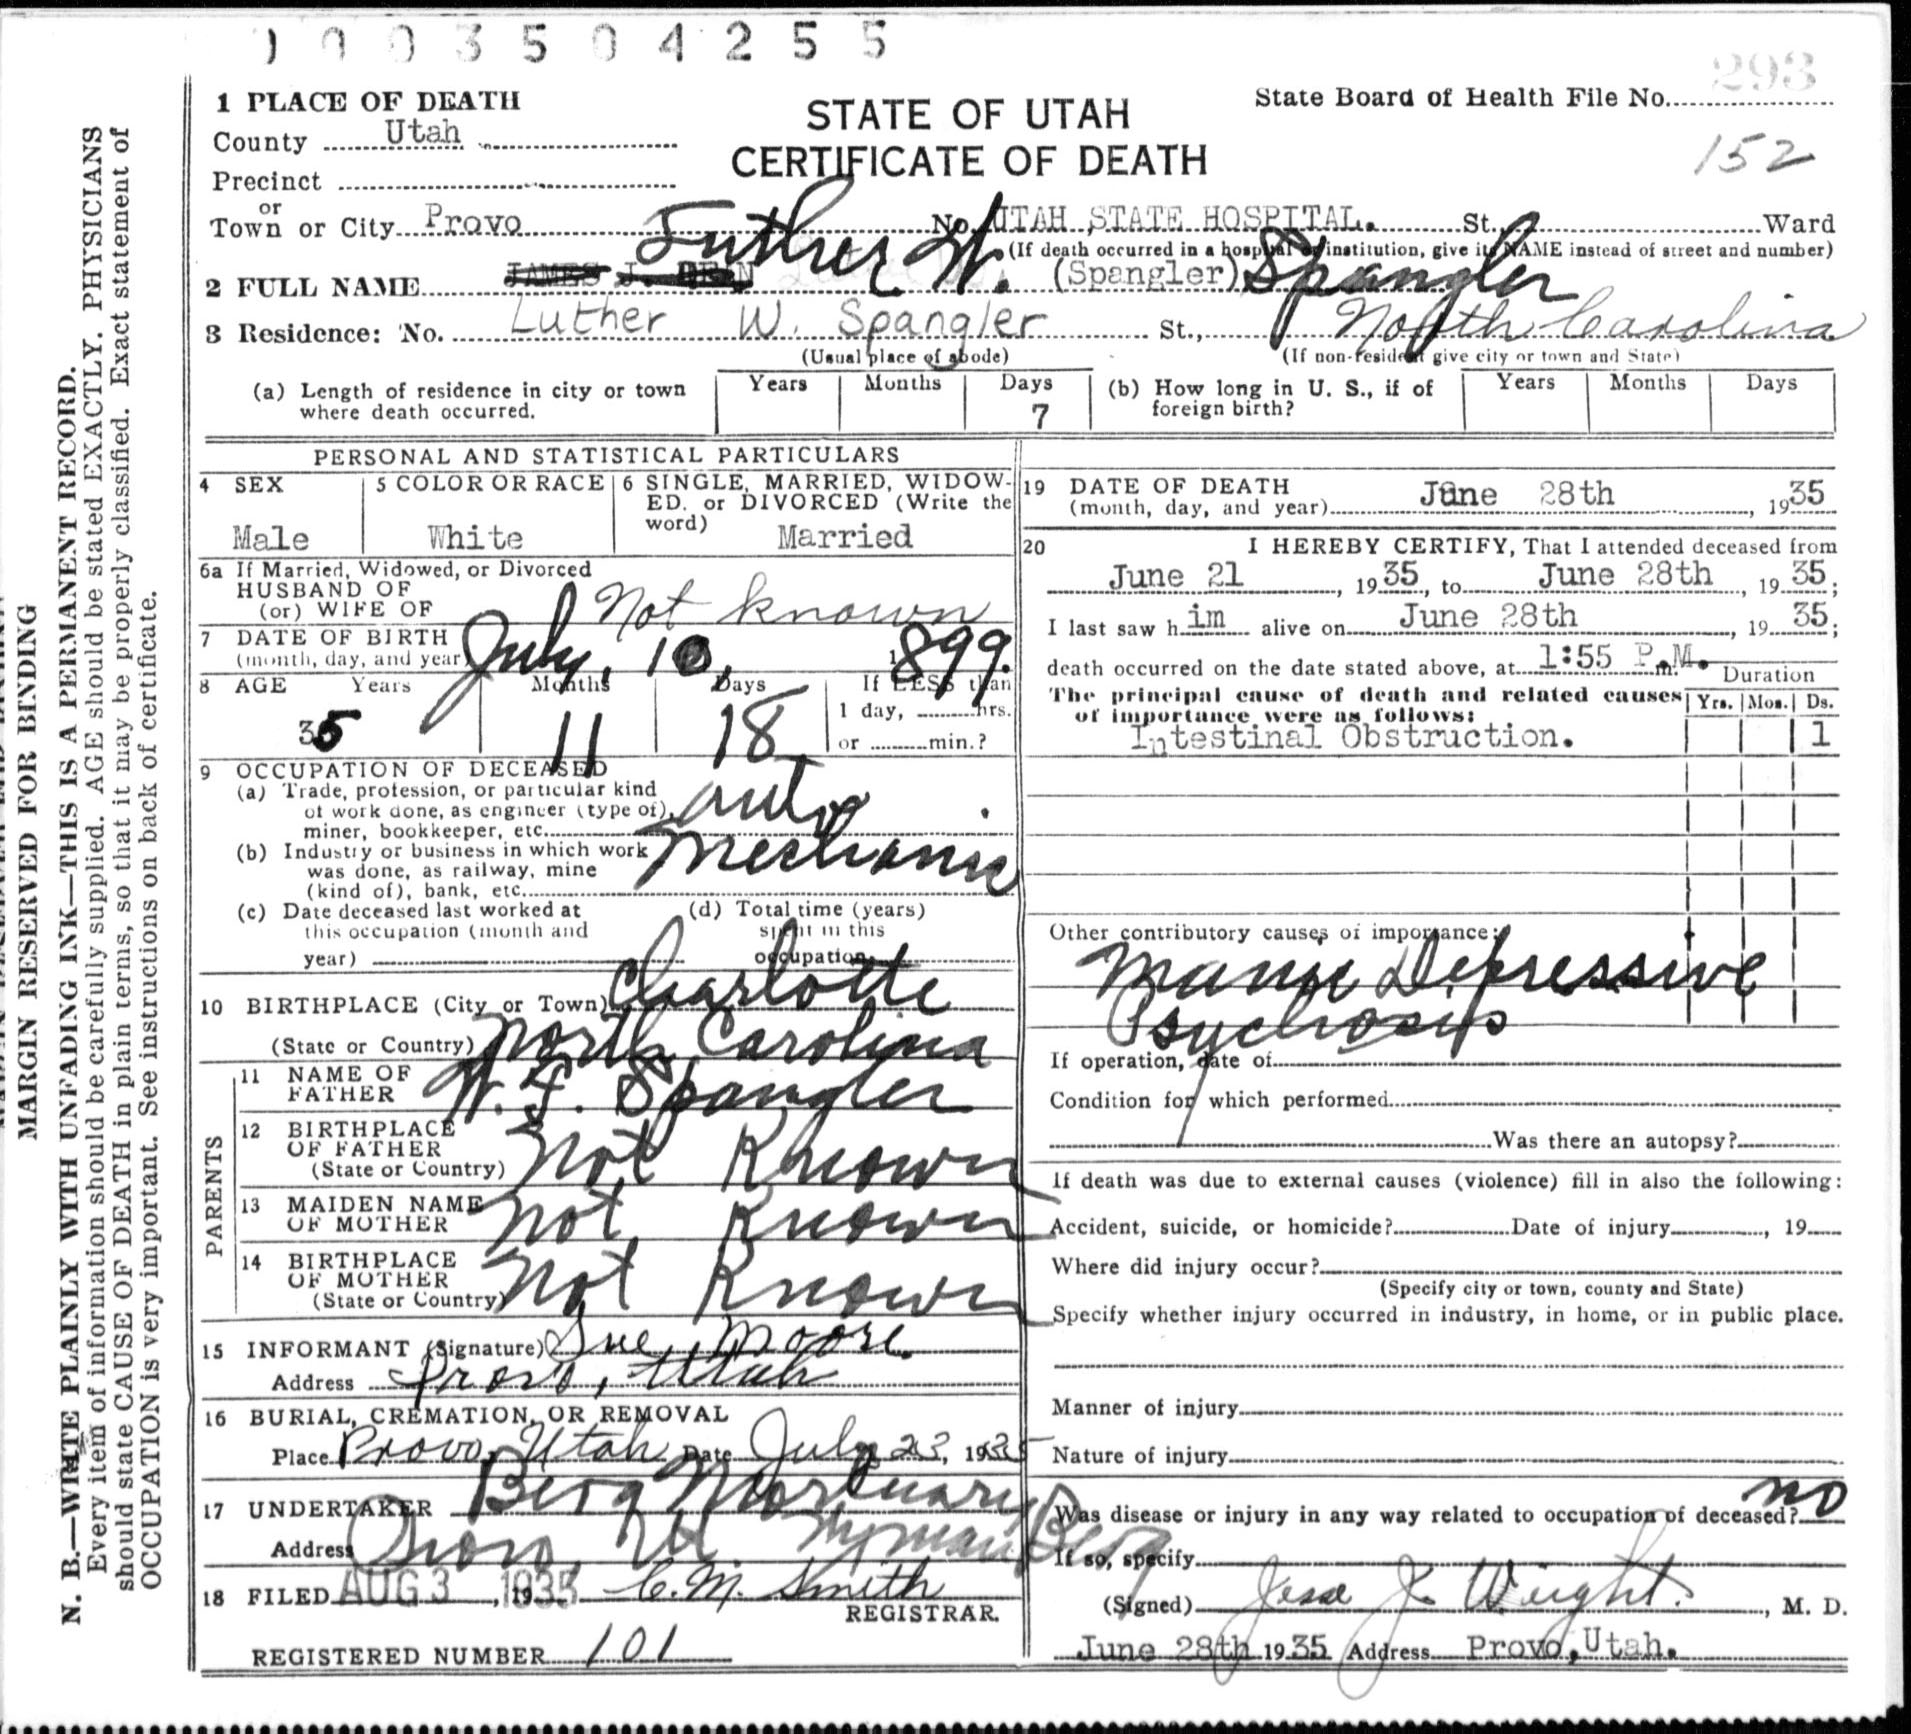 1 0 0 3 5 0 4 2 5 5
293
1 PLACE OF DEATH
STATE OF UTAH
CERTIFICATE OF DEATH
State Board of Health File No.
152
County Utah
Precinct
or
Town or City Provo No. UTAH STATE HOSPITAL. St. Ward
(If death occurred in a hospital or institution, give its NAME instead of street and number)
2 FULL NAME JAMES J. DEAN Luther W. (Spangler) Spangler
3 Residence: No. Luther W. Spangler St., North Carolina
(Usual place of abode) (If non-resident give city or town and State)
(a) Length of residence in city or town where death occurred. Years Months Days 7
(b) How long in U. S., if of foreign birth? Years Months Days
PERSONAL AND STATISTICAL PARTICULARS
4 SEX
Male
5 COLOR OR RACE
White
6 SINGLE, MARRIED, WIDOW-
ED. or DIVORCED (Write the
word)
Married
6a If Married, Widowed, or Divorced
HUSBAND OF
(or) WIFE OF
Not known
7 DATE OF BIRTH
(month, day, and year) July, 10, 1899.
8 AGE Years Months Days If LESS than
35 11 18 1 day, hrs.
or min.?
9 OCCUPATION OF DECEASED
(a) Trade, profession, or particular kind
of work done, as engineer (type of),
miner, bookkeeper, etc. auto
(b) Industry or business in which work
was done, as railway, mine
(kind of), bank, etc. Mechanic
(c) Date deceased last worked at
this occupation (month and
year)
(d) Total time (years)
spent in this
occupation
10 BIRTHPLACE (City or Town) Charlotte
(State or Country) North Carolina
PARENTS
11 NAME OF
FATHER W. F. Spangler
12 BIRTHPLACE
OF FATHER
(State or Country) Not Known
13 MAIDEN NAME
OF MOTHER Not Known
14 BIRTHPLACE
OF MOTHER
(State or Country) Not Known
15 INFORMANT (Signature) Sue Moore.
Address Provo, Utah
16 BURIAL, CREMATION, OR REMOVAL
Place Provo, Utah Date July 23, 1935
17 UNDERTAKER Berg Mortuary
Address Provo, Ut Hyman Berg
18 FILED AUG 3, 1935 C. M. Smith
REGISTRAR.
REGISTERED NUMBER 101
19 DATE OF DEATH
(month, day, and year) June 28th, 1935
20 I HEREBY CERTIFY, That I attended deceased from
June 21, 1935, to June 28th, 1935;
I last saw h im alive on June 28th, 19 35;
death occurred on the date stated above, at 1:55 P.M. m.
The principal cause of death and related causes
of importance were as follows:
Duration
Yrs. Mos. Ds.
Intestinal Obstruction. 1
Other contributory causes of importance:
Manic Depressive
Psychosis
If operation, date of
Condition for which performed
Was there an autopsy?
If death was due to external causes (violence) fill in also the following:
Accident, suicide, or homicide? Date of injury, 19
Where did injury occur?
(Specify city or town, county and State)
Specify whether injury occurred in industry, in home, or in public place.
Manner of injury
Nature of injury
Was disease or injury in any way related to occupation of deceased? no
If so, specify
(Signed) Jesse J. Weight., M. D.
June 28th 1935 Address Provo, Utah.
MARGIN RESERVED FOR BINDING
N. B.—WRITE PLAINLY WITH UNFADING INK—THIS IS A PERMANENT RECORD.
Every item of information should be carefully supplied. AGE should be stated EXACTLY. PHYSICIANS
should state CAUSE OF DEATH in plain terms, so that it may be properly classified. Exact statement of
OCCUPATION is very important. See instructions on back of certificate.